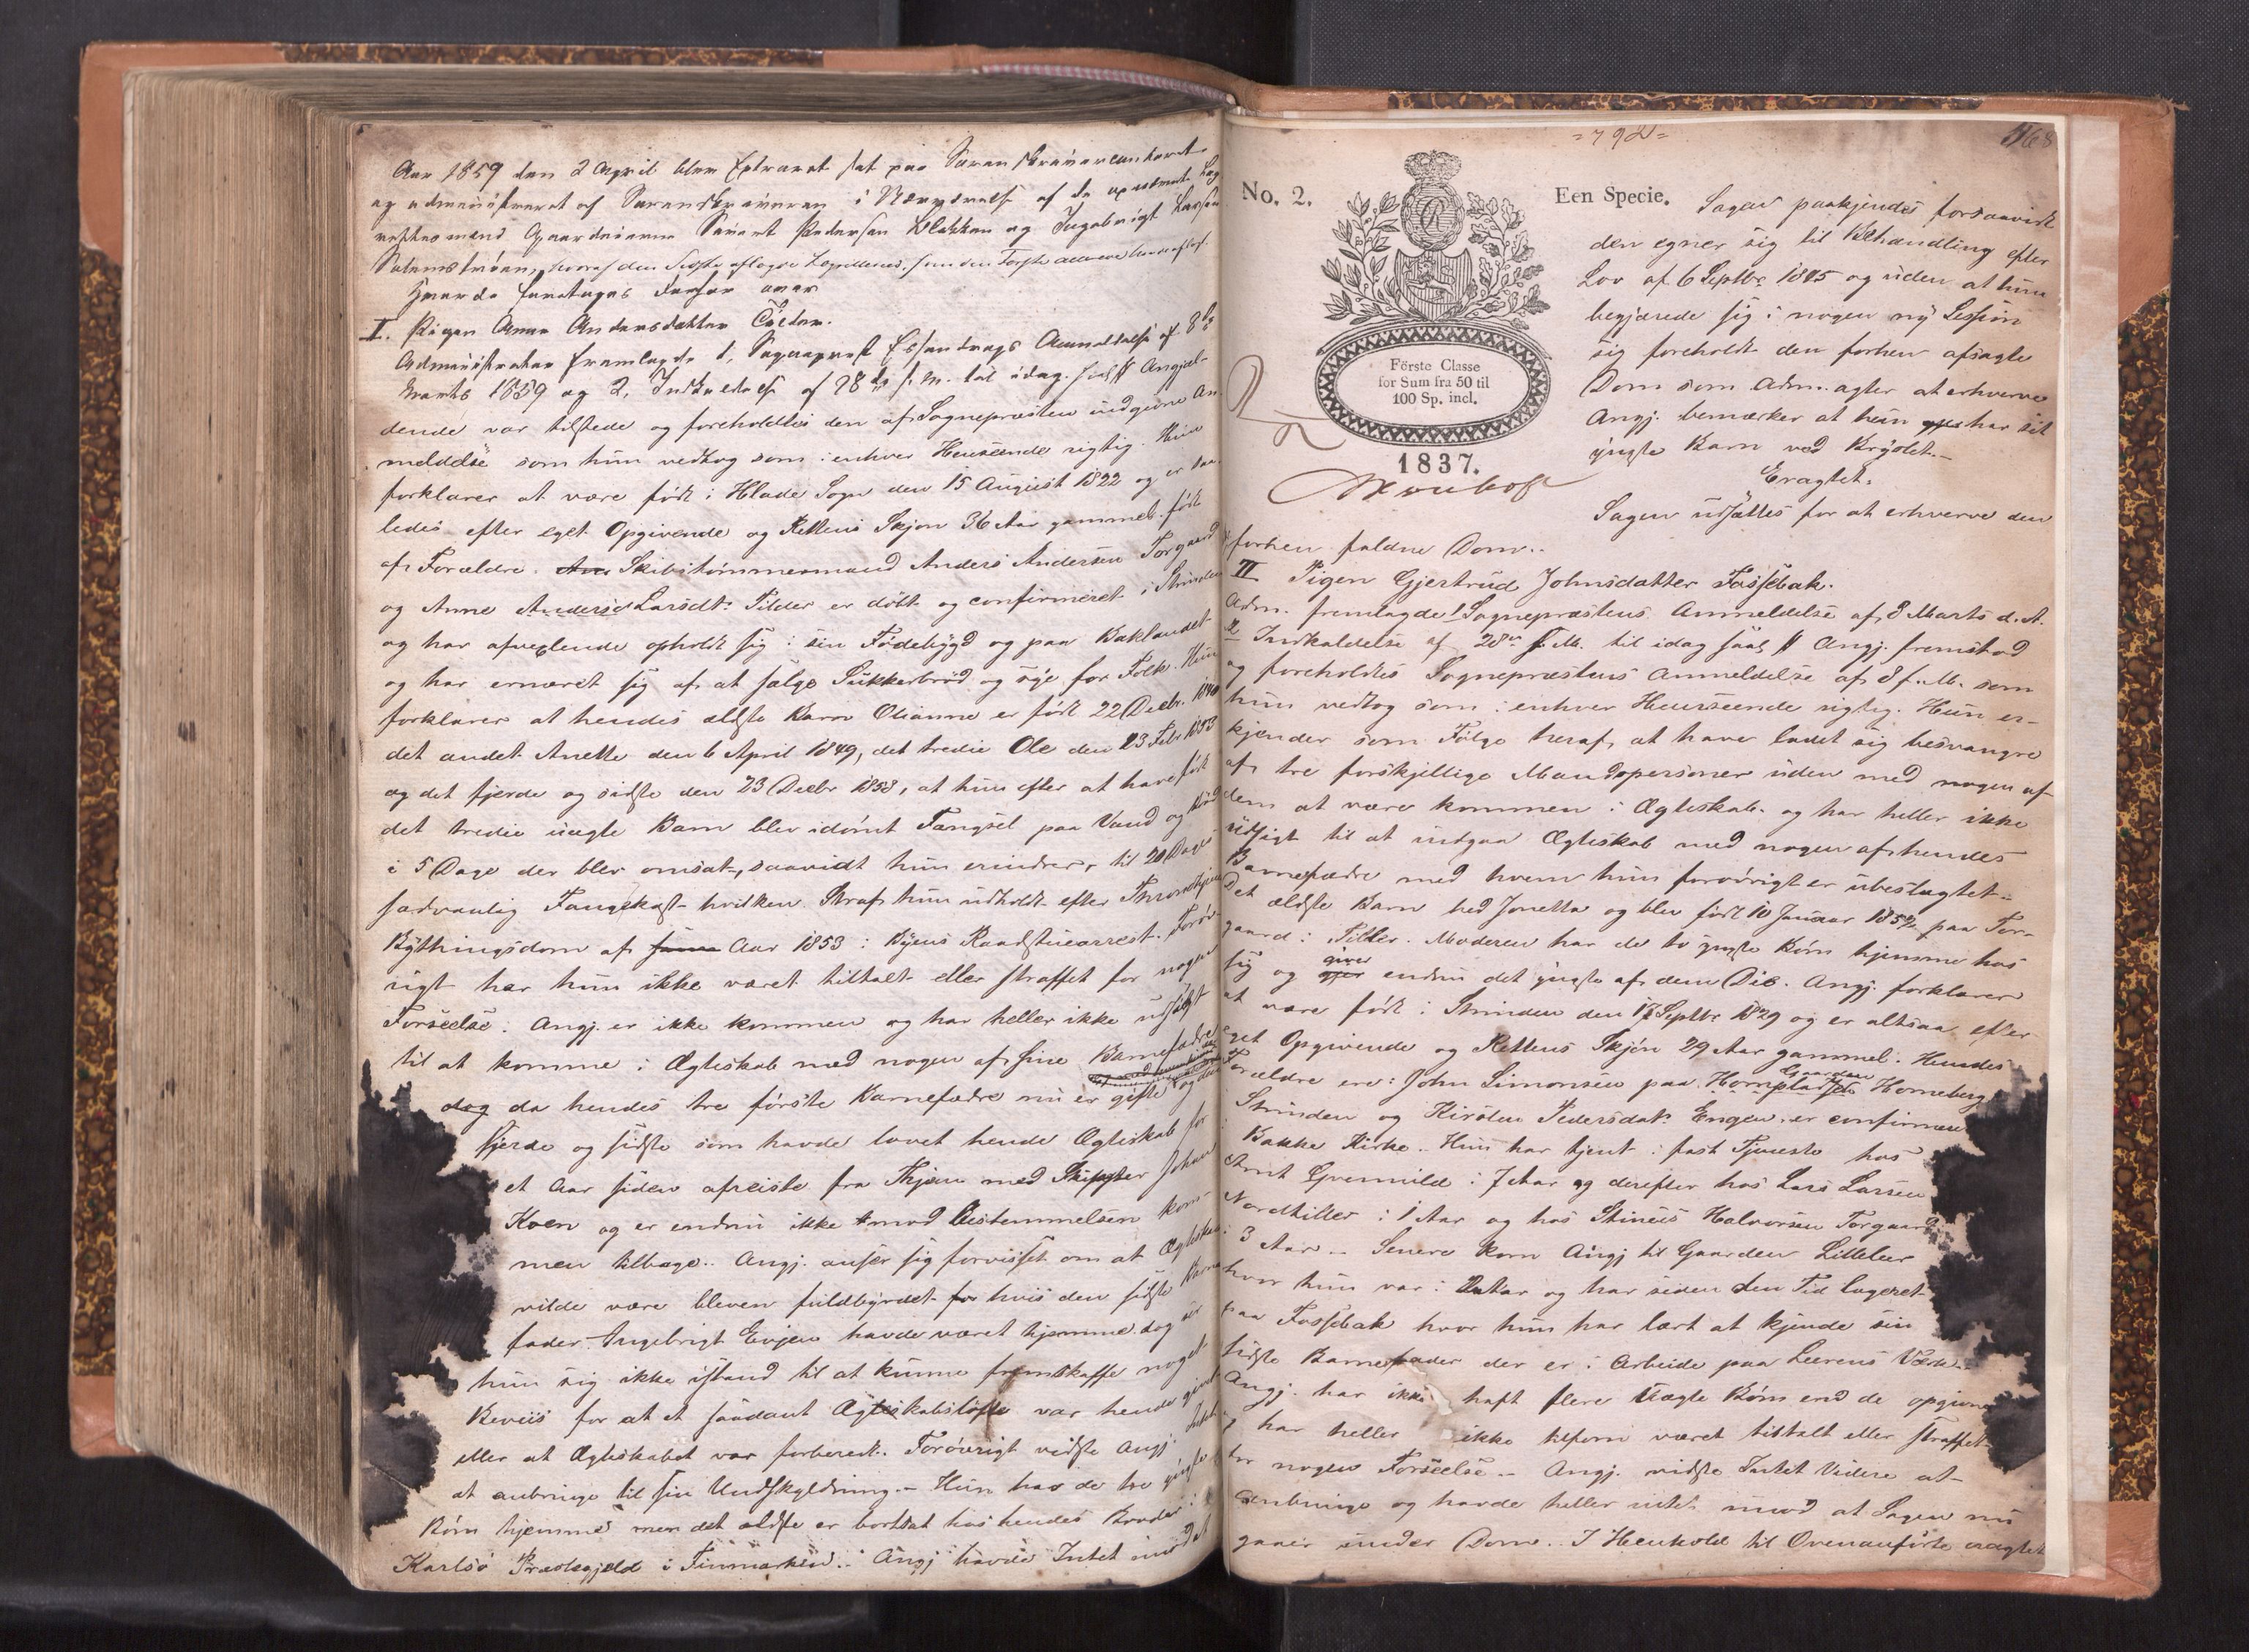 Aar 1859 den 2 April blev Extraret sat paa Sorenskriverembedet
og administreret af Sorenskriveren i Nærværelse af de opnævnte Lag
rettesmænd Gaardeierne Sivert Pedersen Blekken og Ingebrigt Larsen
hvoraf den Sidste aflagde Lageden, som den Første allerede har aflagt.
Hvorda foretages Forhør over
I. Pigen Anne Andersdatter Tiller.
Administrator fremlagde 1, Sognepræst Essendrops Anmeldelse af 8de
Marts 1859 og 2, Indkaldelse af 28de f. M. til idag. Angjel-
dende var tilstede og foreholdtes den af Sognepræsten indgivne An-
meldelse som hun vedtog som i enhver Henseende rigtig. Hun
forklarer at være født i Hlade Sogn den 15 August 1822 og er saa-
ledes efter eget Opgivende og Rettens Skjøn 36 Aar gammel, født
af Forældre Skibstømmermand Anders Andersen Torgaard
og Anne Larsdt: Tilder er døbt og confirmeret i Strinden
og har afvexlende opholdt sig i sin Fødebygd og paa Baklandet
og har ernæret sig af at sælge Sukkerbrød og sye for Folk. Hun
forklarer at hendes ældste Barn Olianne er født 22 Decbr. 1840
det andet Anette den 6 April 1849, det tredie Ole den 23 Febr 1853
og det fjerde og sidste den 23 Decbr 1858, at hun efter at have født
det tredie uægte Barn blev idømt Fængsel paa Vand og Brød
i 5 Dage der blev omsat, saavidt hun erindrer, til 20 Dages
sædvanlig Fangekost hvilken Straf hun udholdt efter Throndhjems
Bythingsdom af Aar 1853 i Byens Raadstuearrest. Forøv-
rigt har hun ikke været tiltalt eller straffet for nogen
Forseelse. Angj. er ikke kommen og har heller ikke udsigt
til at komme i Ægteskab med nogen af sine Barnefædre
dog da hendes tre første Barnefædre nu er gifte og den
fjerde og sidste som havde lovet hende Ægteskab for
et Aar siden afreiste fra Thjem med Skipper Johan
Koen og er endnu ikke mod Bestemmelsen kom-
men tilbage. Angj. anser sig forvisset om at Ægteskab
vilde være bleven fuldbyrdet hvis den sidste Barne
fader Ingebrigt Evjen havde været hjemme dog ser
hun sig ikke istand til at kunne fremskaffe noget
Beviis for at et saadant Ægteskabsløfte var hende givet
eller at Ægteskabet var forberedt. Forøvrigt vidste Angj. Intet
at anbringe til sin Undskyldning. Hun har de tre yngste
Børn hjemme men det ældste er bortsat hos hendes Broder i
Karlsø Præstegjeld i Finmarken. Angj havde Intet imod at
=792=
468
No. 2.
Een Specie.
Förste Classe
for Sum fra 50 til
100 Sp. incl.
1837.
Sagen paakjendes forsaavidt
den egner sig til Behandling efter
Lov af 6 Septbr 1845 og uden at hun
begjærede sig i nogen ny Session
sig foreholdt den forhen afsagte
Dom som Adm. agter at erhverve
Angj. bemærker at hun har sit
yngste Barn ved Brystet.
Eragtet:
Sagen udsættes for at erhverve den
forhen faldne Dom.
II Pigen Gjertrud Johnsdatter Fossebak.
Adm. fremlagde 1 Sognepræstens Anmeldelse af 8 Marts d. A.
2 Indkaldelse af 28de f. M. til idag Angj. fremstod
og foreholdtes Sognepræstens Anmeldelse af 8 f. M. som
hun vedtog som i enhver Henseende rigtig. Hun er-
kjender som Følge heraf at have ladet sig besvangre
af tre forskjellige Mandspersoner uden med nogen af
dem at være kommen i Ægteskab og har heller ikke
Udsigt til at indgaa Ægteskab med nogen af hendes
Barnefædre med hvem hun forøvrigt er ubeslægtet.
Det ældste Barn hed Jonetta og blev født 10 Januar 1852 paa Tor-
gaard i Tiller. Moderen har de to yngste Børn hjemme hos
sig og giver endnu det yngste af dem Die. Angj. forklarer
at være født i Strinden den 17 Septbr 1829 og er altsaa efter
eget Opgivende og Rettens Skjøn 29 Aar gammel. Hendes
Forældre ere: John Simonsen paa Gaarden Horneberg
i Strinden og Kirsten Pedersdatr Engen, er confirmeret
i Bakke Kirke. Hun har tjent i fast Tjeneste hos
Arnt Grenmild i 7 Aar og derefter hos Lars Larsen
Nordtiller i 1 Aar og hos Stineus Halvorsen Torgaard
i 3 Aar. Senere kom Angj til Gaarden Lilleleer
hvor hun var i Aar og har siden den Tid logeret
paa Fossebak hvor hun har lært at kjende sin
sidste Barnefader der er i Arbeide paa Leerens Værk.
Angj. har ikke haft flere Uægte Børn end de opgivne
og har heller ikke tilforn været tiltalt eller straffet
for nogen Forseelse. Angj. vidste Intet Videre at
anbringe og havde heller intet imod at Sagen nu
gaaer under Dom. I Henhold til Ovenanførte eragtet